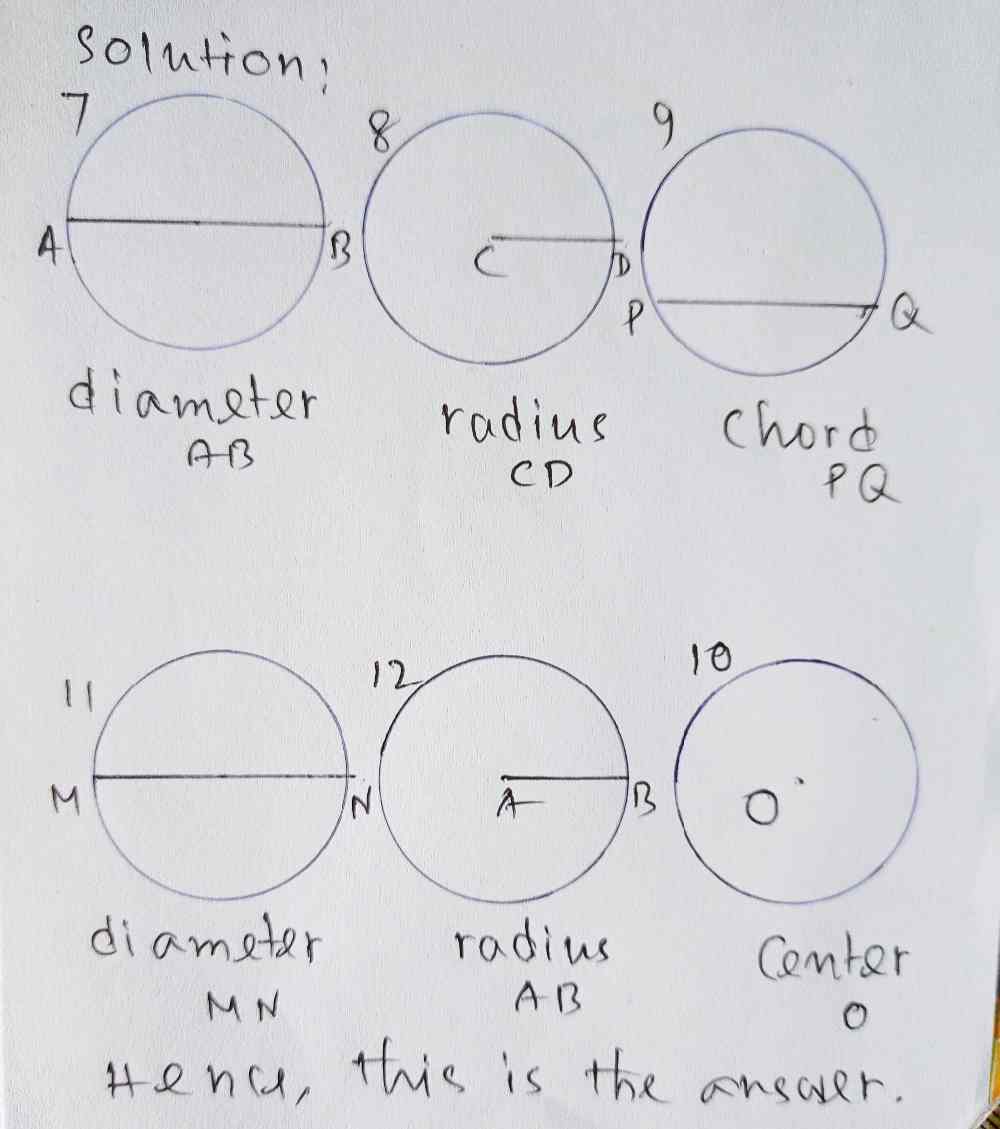 Solution:
7 8 9
A B C D P Q
diameter radius Chord
AB CD PQ
11 12 10
M N A B O
diameter radius Center
MN AB O
Hence, this is the answer.